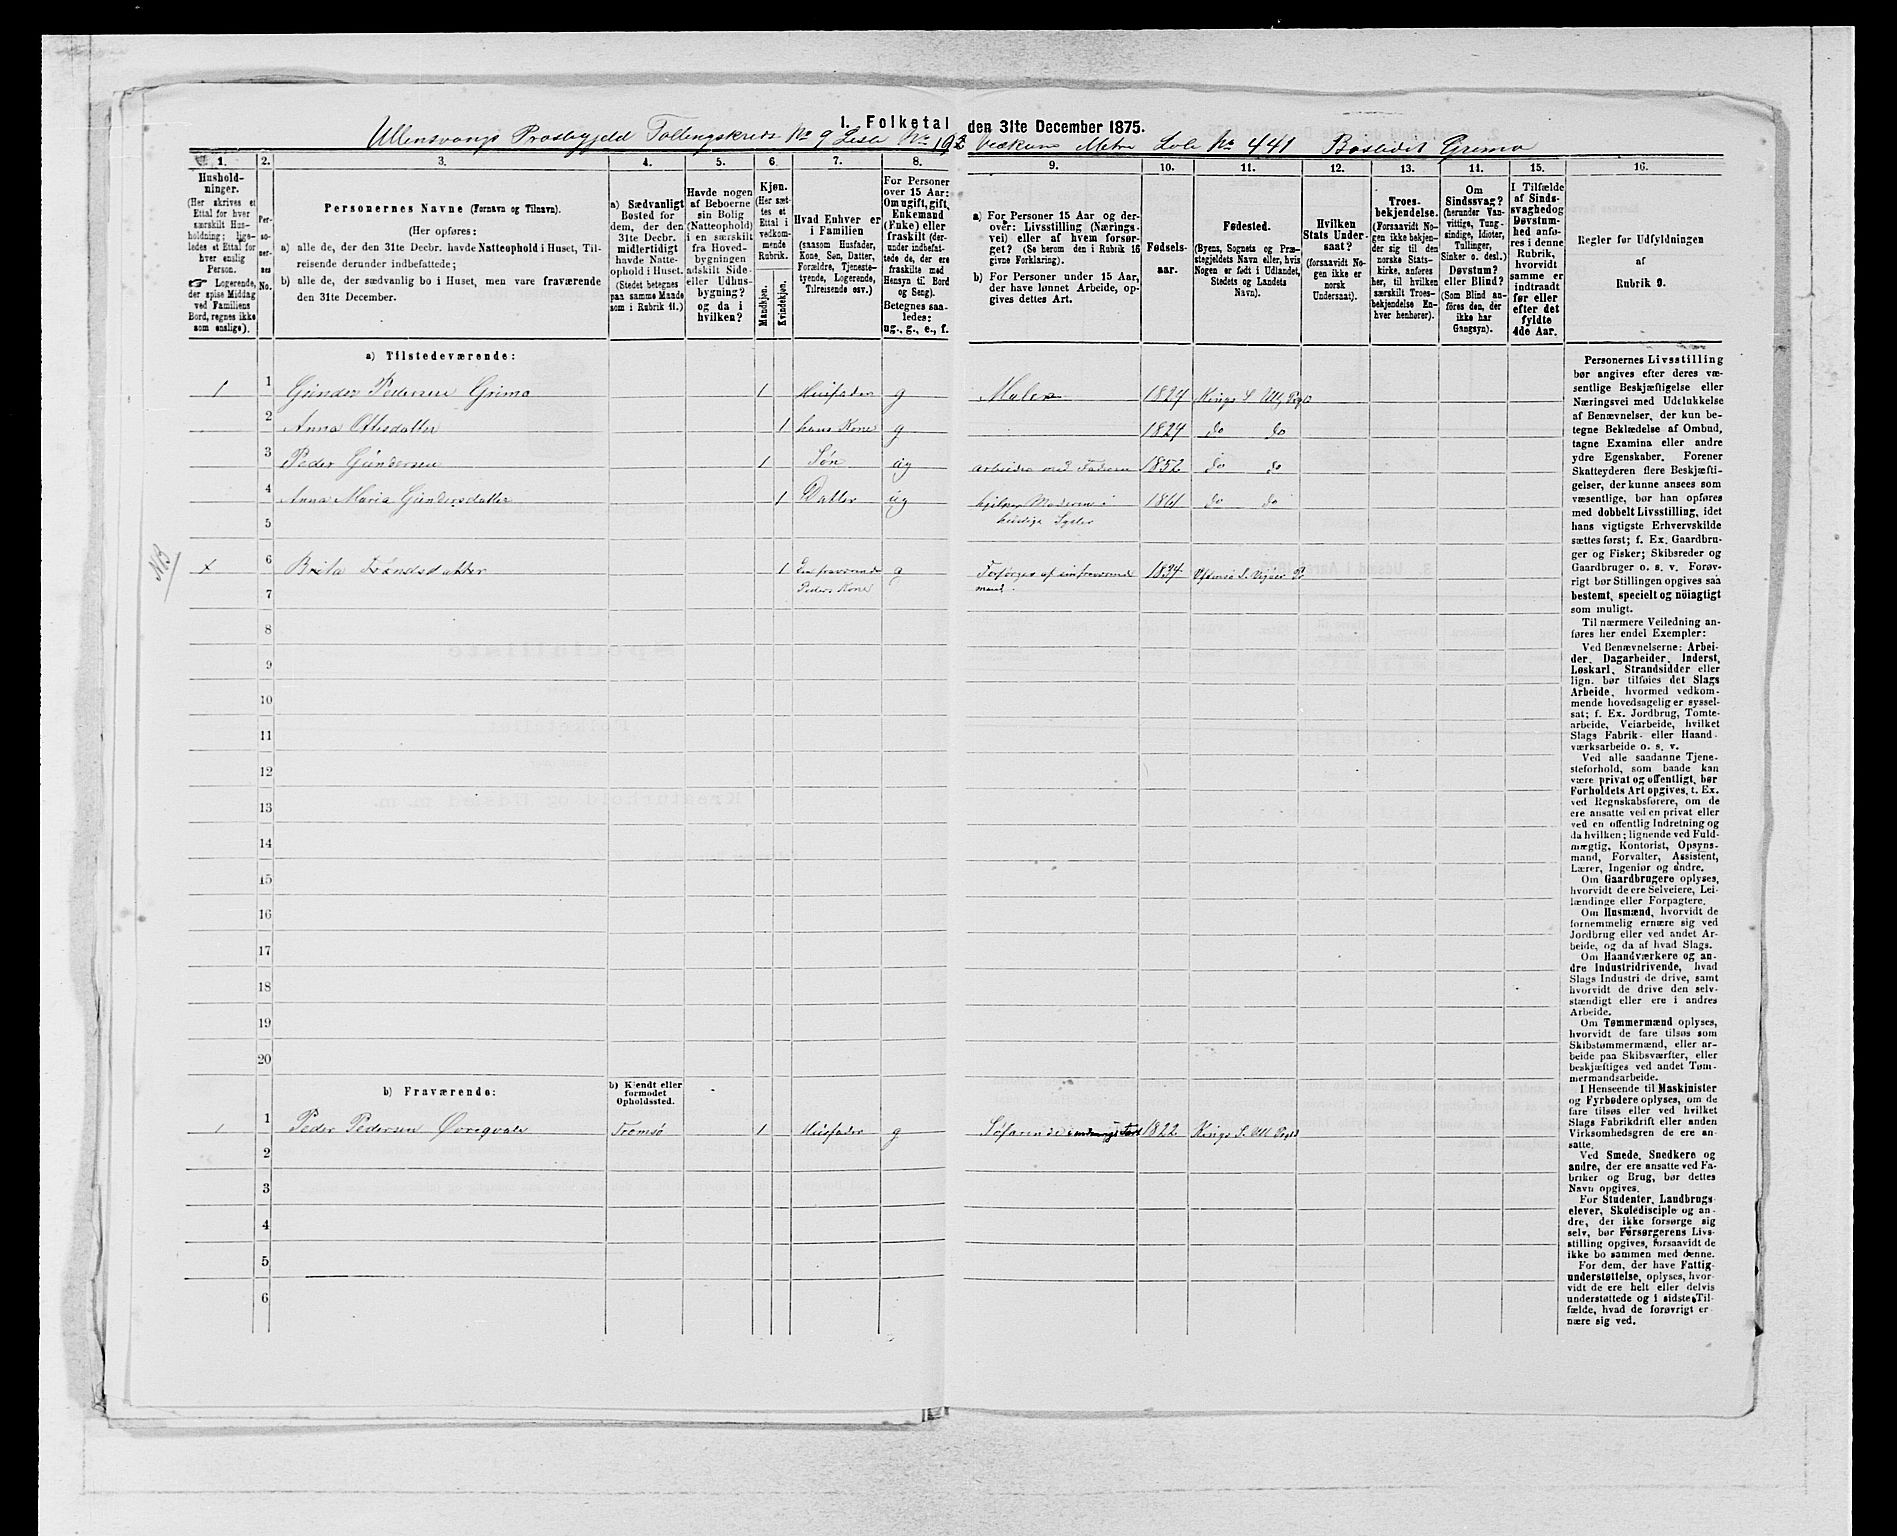 I. Folketal den 31te December 1875.
Ullensvangs Præstegjeld Tællingskreds No 9 Liste No 192 Matr. Løb No 441 Bostedet Grimo
1.
2.
3.
4.
5.
6.
7.
8.
9.
10.
11.
12.
13.
14.
15.
16.
Hushold-
ninger.
(Her skrives et
Ettal for hver
særskilt Hus-
holdning; lige-
ledes et Ettal for
hver enslig
Person.
☛ Logerende,
der spise Middag
ved Familiens
Bord, regnes ikke
som enslige).
Per-
so-
ner-
nes
No.
Personernes Navne (Fornavn og Tilnavn).
(Her opføres:
a) alle de, der den 31te Decbr. havde Natteophold i Huset, Til-
reisende derunder indbefattede;
b) alle de, der sædvanlig bo i Huset, men vare fraværende
den 31te December.
a) Sædvanligt
Bosted for
dem, der den
31te Decbr.
midlertidigt
havde Natte-
ophold i Huset.
(Stedet betegnes
paa samme Maade
som i Rubrik 11.)
Havde nogen
af Beboerne
sin Bolig
(Natteophold)
i en særskilt
fra Hoved-
bygningen
adskilt Side-
eller Udhus-
bygning?
og da i
hvilken?
Kjøn.
(Her sæt-
tes et
Ettal i
vedkom-
mende
Rubrik.
Mandkjøn.
Kvindekjøn.
Hvad Enhver er
i Familien
(saasom Husfader,
Kone, Søn, Datter,
Forældre, Tjeneste-
tyende, Logerende,
Tilreisende osv.)
For Personer
over 15 Aar:
Om ugift, gift,
Enkemand
(Enke) eller
fraskilt (der-
under indbefat-
tede de, der ere
fraskilte med
Hensyn til Bord
og Seng).
Betegnes saa-
ledes:
ug., g., e., f.
a) For Personer 15 Aar og der-
over: Livsstilling (Nærings-
vei) eller af hvem forsør-
get? (Se herom den i Rubrik 16
givne Forklaring).
b) For Personer under 15 Aar,
der have lønnet Arbeide, op-
gives dettes Art.
Fødsels-
aar.
Fødested.
(Byens, Sognets og Præ-
stegjeldets Navn eller, hvis
Nogen er født i Udlandet,
Stedets og Landets
Navn).
Hvilken
Stats Under-
saat?
(forsaavidt No-
gen ikke er
norsk
Undersaat).
Troes-
bekjendelse.
(Forsaavidt No-
gen ikke bekjen-
der sig til den
norske Stats-
kirke, anføres
her, til hvilken
særskilt Troes-
bekjendelse En-
hver henhører).
Om
Sindssvag?
(herunder Van-
vittige, Tung-
sindige, Idioter,
Tullinger,
Sinker o. desl.)
Døvstum?
eller Blind?
(Som Blind an-
føres den, der
ikke har
Gangsyn).
I Tilfælde
af Sinds-
svaghed og
Døvstum-
hed anfø-
res i denne
Rubrik,
hvorvidt
samme er
indtraadt
før eller
efter det
fyldte
4de Aar.
Regler for Udfyldningen
af
Rubrik 9.
a) Tilstedeværende:
1 1 Gunder Pedersen Grimo 1 Husfader g Maler 1827 Kings S. Ull. Prgd
2 Anna Olesdatter 1 hans Kone g 1824 do do
3 Peder Gundersen 1 Søn ug arbeider med Faderen 1852 do do
4 Anna Maria Gundersdatter 1 Datter ug hjelper Moderen i 1861 do do
5 huslige Sysler
NB
x 6 Brita Tróndsdatter 1 Den fraværende g Forsørges af sin fraværende 1834
7 Peders Kone mand.
8
9
10
11
12
13
14
15
16
17
18
19
20
b) Fraværende:
b) Kjendt eller
formodet
Opholdssted.
1 1 Peder Pedersen Tromsø 1 Husfader g Søfarende 1822 Kings S. Ull. Prgd
2
3
4
5
6
Personernes Livsstilling
bør angives efter deres væ-
sentlige Beskjæftigelse eller
Næringsvei med Udelukkelse
af Benævnelser, der kun be-
tegne Beklædelse af Ombud,
tagne Examina eller andre
ydre Egenskaber. Forener
Skatteyderen flere Beskjæfti-
gelser, der kunne ansees som
væsentlige, bør han opføres
med dobbelt Livsstilling, idet
hans vigtigste Erhvervskilde
sættes først; f. Ex. Gaardbru-
ger og Fisker; Skibsreder og
Gaardbruger o. s. v. Forøv-
rigt bør Stillingen opgives saa
bestemt, specielt og nöiagtigt
som muligt.
Til nærmere Veiledning an-
føres her endel Exempler:
Ved Benævnelserne: Arbei-
der, Dagarbeider, Inderst,
Løskarl, Strandsidder eller
lign. bør tilføies det Slags
Arbeide, hvormed vedkom-
mende hovedsagelig er syssel-
sat; f. Ex. Jordbrug, Tomte-
arbeide, Veiarbeide, hvilket
Slags Fabrik- eller Haand-
værksarbeide o. s. v.
Ved alle saadanne Tjene-
steforhold, som baade kan
være privat og offentligt, bør
Forholdets Art opgives, t. Ex.
ved Regnskabsførere, om de
ere ansatte ved en privat eller
ved en offentlig Indretning og
da hvilken; lignende ved Fuld-
mægtig, Kontorist, Opsyns-
mand, Forvalter, Assistent,
Lærer, Ingeniør og andre.
Om Gaardbrugere oplyses,
hvorvidt de ere Selveiere, Lei-
lændinge eller Forpagtere.
Om Husmænd, hvorvidt de
fornemmelig ernære sig ved
Jordbrug eller ved andet Ar-
beide, og da af hvad Slags.
Om Haandværkere og an-
dre Industridrivende, hvad
Slags Industri de drive, samt
hvorvidt de drive den selv-
stændigt eller ere i andres
Arbeide.
Om Tømmermænd oplyses,
hvorvidt de fare tilsøs som
Skibstømmermænd, eller ar-
beide paa Skibsværfter, eller
beskjæftiges ved andet Tøm-
mermandsarbeide.
I Henseende til Maskinister
og Fyrbødere oplyses, om de
fare tilsøs eller ved hvilket
Slags Fabrikdrift eller anden
Virksomhedsgren de ere an-
satte.
Ved Smede, Snedkere og
andre, der ere ansatte ved Fa-
briker og Brug, bør dettes
Navn opgives.
For Studenter, Landbrugs-
elever, Skoledisciple og an-
dre, der ikke forsørge sig
selv, bør Forsørgerens Livs-
stilling opgives, forsaavidt de
ikke bo sammen med denne.
For dem, der have Fattig-
understøttelse, oplyses, hvor-
vidt de ere helt eller delvis
understøttede og i sidste Til-
fælde, hvad de forøvrigt er-
nære sig ved.